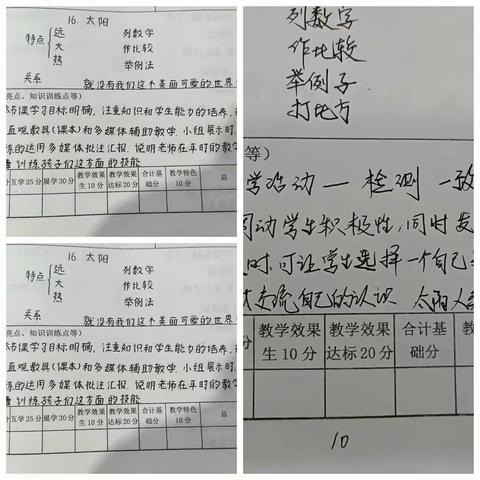 16. 太阳
特点 远 列数字
大 作比较
热 举例法
关系 就没有我们这个美丽可爱的世界
亮点、知识训练点等）
本节课学习目标明确，注重知识和学生能力的培养，
直观教具（课本）和多媒体辅助教学，小组展示时，
练的运用多媒体批注汇报，说明老师在平时的教学
重训练孩子们这方面的技能
互学25分 展学30分 教学效果生10分 教学效果达标20分 合计基础分 教学特色10分 总
16. 太阳
特点 远 列数字
大 作比较
热 举例法
关系 就没有我们这个美丽可爱的世界
亮点、知识训练点等）
本节课学习目标明确，注重知识和学生能力的培养，
直观教具（课本）和多媒体辅助教学，小组展示时，
练的运用多媒体批注汇报，说明老师在平时的教学
重训练孩子们这方面的技能
互学25分 展学30分 教学效果生10分 教学效果达标20分 合计基础分 教学特色10分 总
列数字
作比较
举例子
打比方
等）
学活动 — 检测 一致
动学生积极性，同时发
时，可让学生选择一个自己
交流自己的认识 太阳人
分 教学效果生10分 教学效果达标20分 合计基础分 教
10